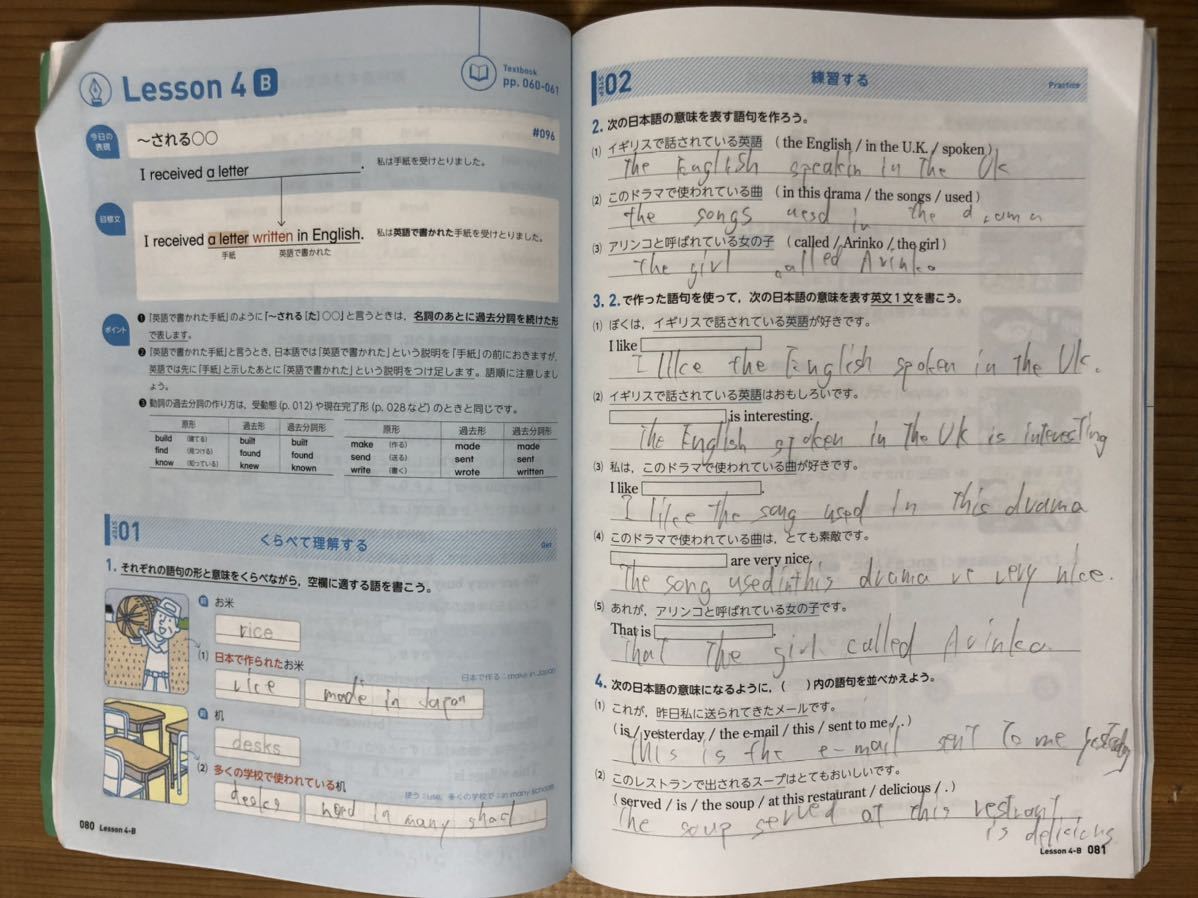 Lesson 4 B
Textbook
pp. 060-061
今日の表現
〜される○○
#096
I received a letter .
私は手紙を受けとりました。
目標文
I received a letter written in English.
私は英語で書かれた手紙を受けとりました。
手紙
英語で書かれた
ポイント
❶「英語で書かれた手紙」のように「〜される [た] ○○」と言うときは，名詞のあとに過去分詞を続けた形
で表します。
❷「英語で書かれた手紙」と言うとき，日本語では「英語で書かれた」という説明を「手紙」の前におきますが，
英語では先に「手紙」と示したあとに「英語で書かれた」という説明をつけ足します。語順に注意しまし
ょう。
❸ 動詞の過去分詞の作り方は，受動態 (p. 012) や現在完了形 (p. 028 など) のときと同じです。
原形 過去形 過去分詞形 原形 過去形 過去分詞形
build (建てる) built built make (作る) made made
find (見つける) found found send (送る) sent sent
know (知っている) knew known write (書く) wrote written
STEP 01
くらべて理解する
Get
1. それぞれの語句の形と意味をくらべながら，空欄に適する語を書こう。
前 お米
rice
(1) 日本で作られたお米
日本で作る : make in Japan
rice made in Japan
前 机
desks
(2) 多くの学校で使われている机
使う : use, 多くの学校で : in many schools
desks in many
080 Lesson 4-B
STEP 02
練習する
Practice
2. 次の日本語の意味を表す語句を作ろう。
(1) イギリスで話されている英語 (the English / in the U.K. / spoken)
The English speakin in The Uk
(2) このドラマで使われている曲 (in this drama / the songs / used)
the songs used in the drama
(3) アリンコと呼ばれている女の子 (called / Arinko / the girl)
The girl called Arinko
3. 2. で作った語句を使って，次の日本語の意味を表す英文１文を書こう。
(1) ぼくは，イギリスで話されている英語が好きです。
I like .
I like the English spoken in the Uk.
(2) イギリスで話されている英語はおもしろいです。
is interesting.
The English spoken in The Uk is interesting
(3) 私は，このドラマで使われている曲が好きです。
I like .
I like The song used In this drama
(4) このドラマで使われている曲は，とても素敵です。
are very nice.
The song used in this drama very nice.
(5) あれが，アリンコと呼ばれている女の子です。
That is .
That The girl called Arinko.
4. 次の日本語の意味になるように，( ) 内の語句を並べかえよう。
(1) これが，昨日私に送られてきたメールです。
(is / yesterday / the e-mail / this / sent to me / .)
This is the e-mail sent To me yesterday
(2) このレストランで出されるスープはとてもおいしいです。
(served / is / the soup / at this restaurant / delicious / .)
The soup served at this restrant
is delicious
Lesson 4-B 081